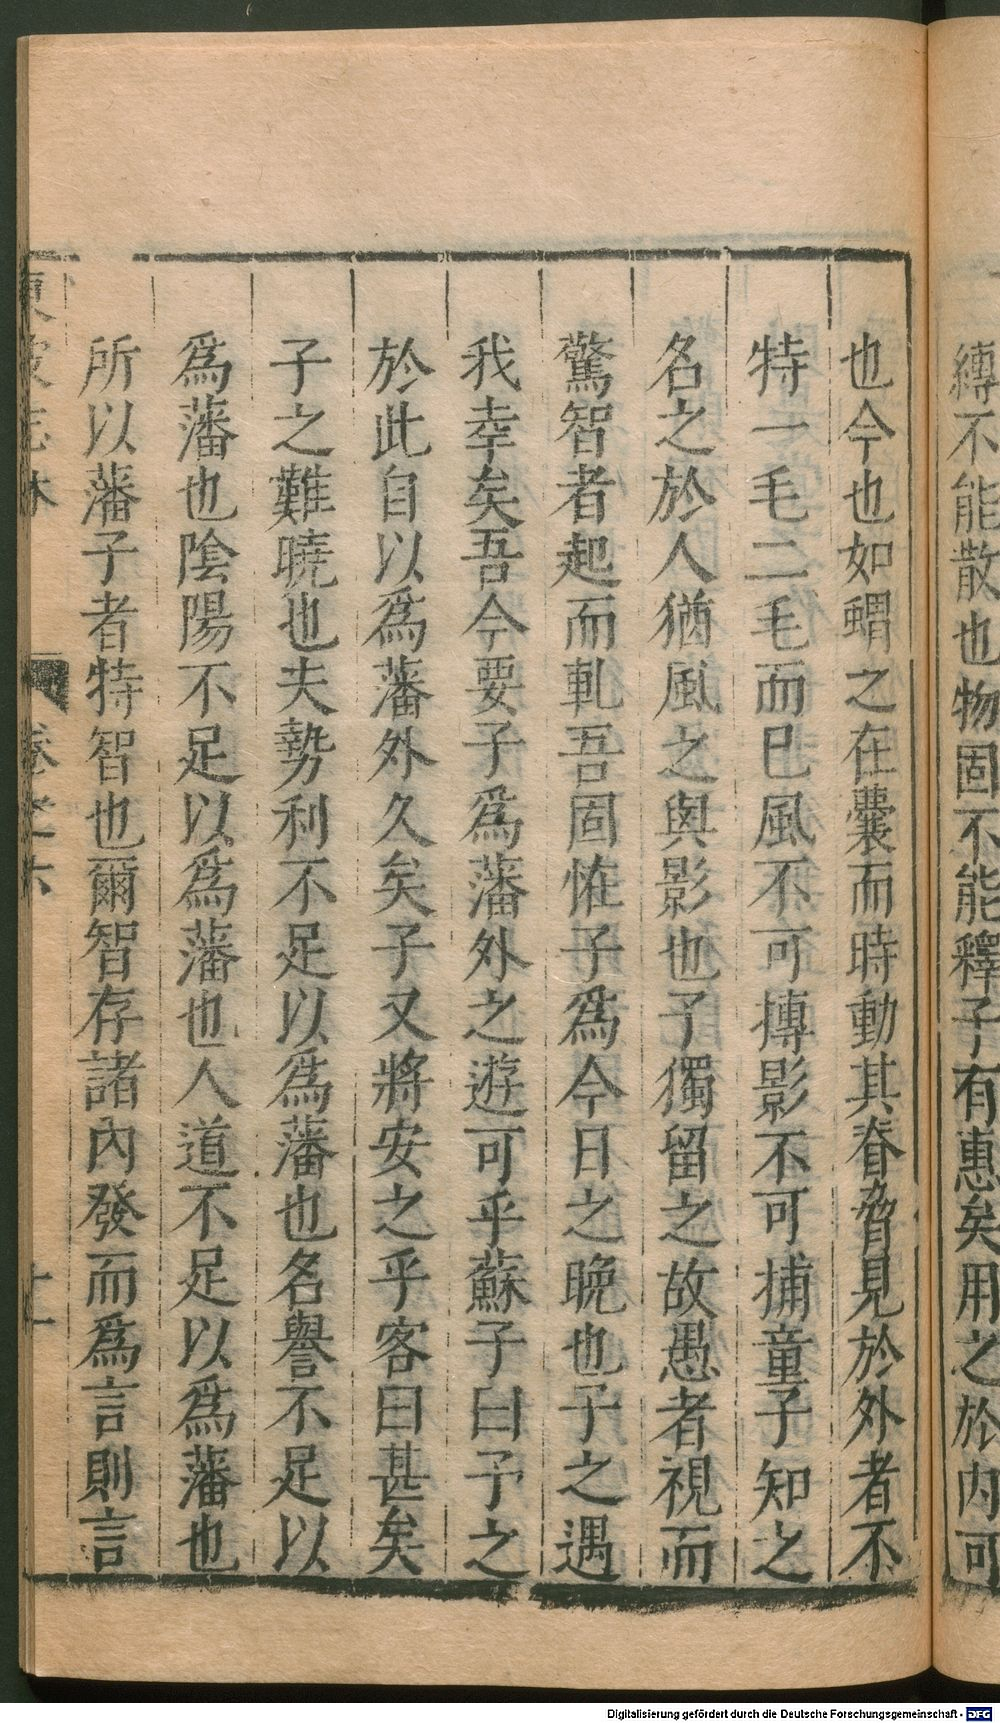 縛不能散也物固不能釋子有惠矣用之於内可
也今也如蝟之在囊而時動其脊脅見於外者不
特一毛二毛而巳風不可摶影不可捕童子知之
名之於人猶風之與影也子獨留之故愚者視而
驚智者起而軋吾固恠子爲今日之晚也子之遇
我幸矣吾今要子爲藩外之遊可乎蘇子曰予之
於此自以爲藩外久矣子又將安之乎客曰甚矣
子之難曉也夫勢利不足以爲藩也名譽不足以
爲藩也陰陽不足以爲藩也人道不足以爲藩也
所以藩子者特智也爾智存諸内發而爲言則言
東坡志林
卷之六
十一
Digitalisierung gefördert durch die Deutsche Forschungsgemeinschaft - DFG